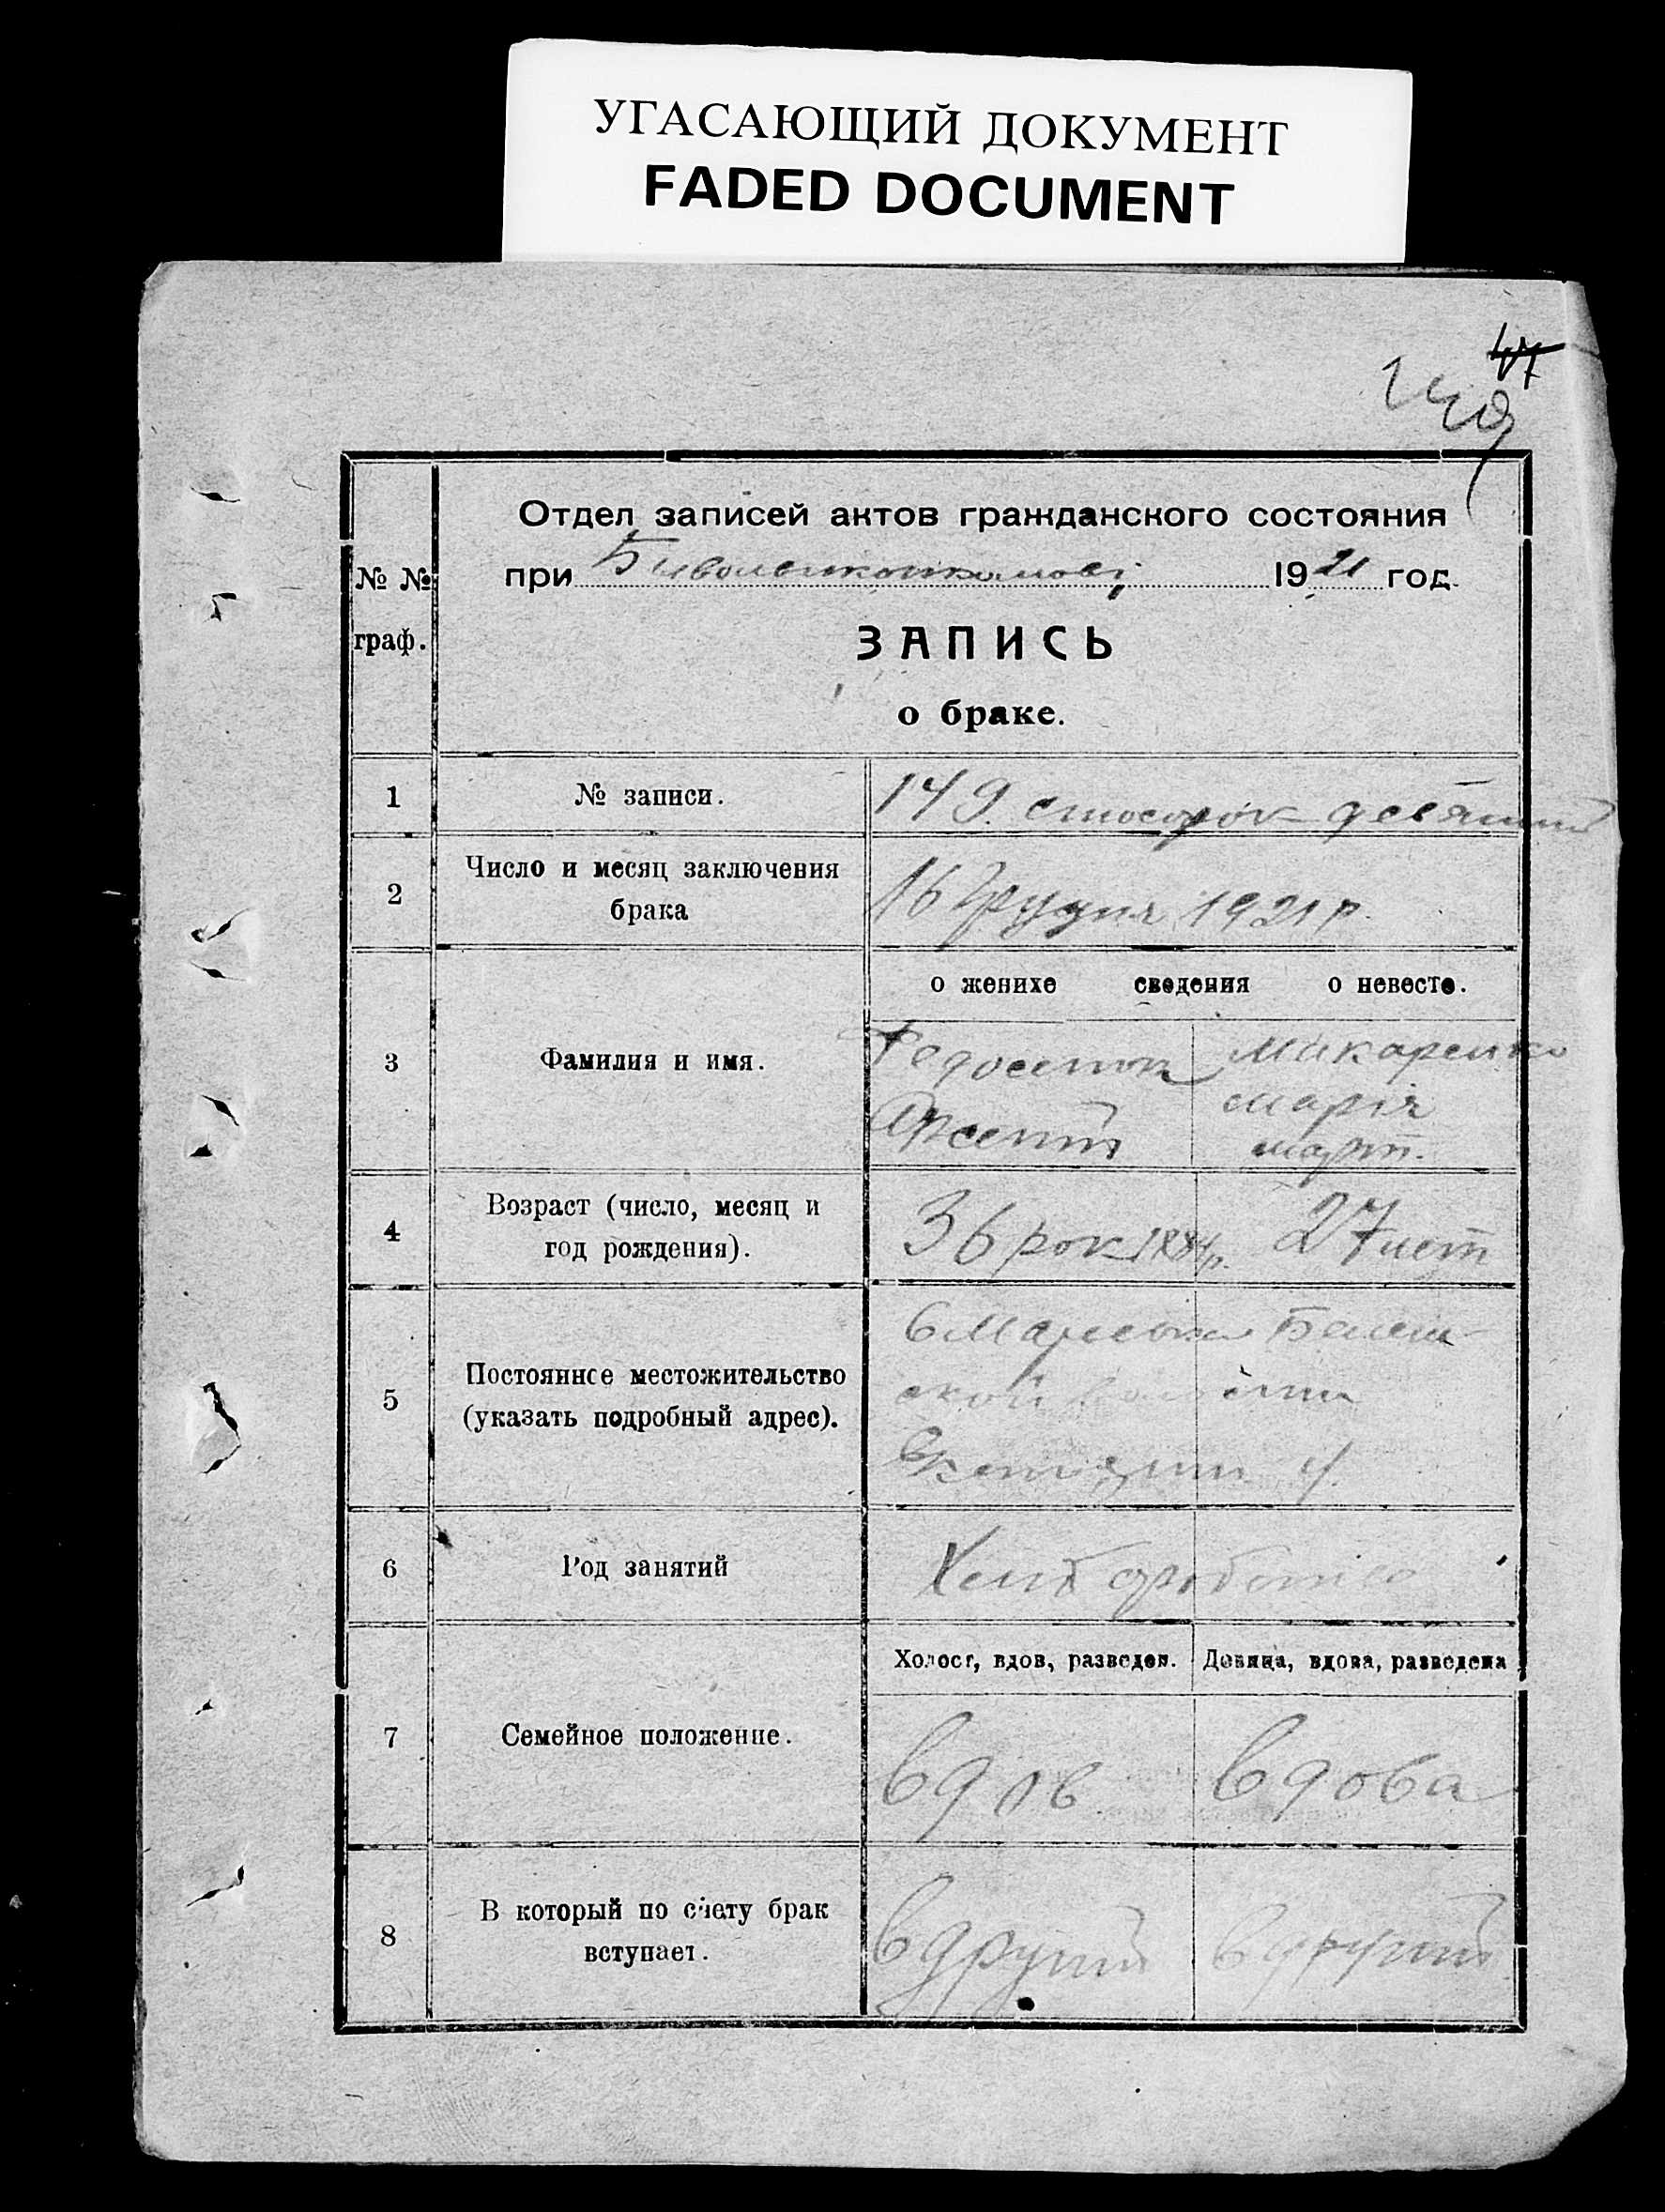 УГАСАЮЩИЙ ДОКУМЕНТ
FADED DOCUMENT
47
149
Отдел записей актов гражданского состояния
при 1921 год.
№ №
граф.
ЗАПИСЬ
о браке.
1 № записи. 149 стосорок девятий
2 Число и месяц заключения
брака 16 Грудня 1921 р.
о женихе сведения о невесте.
3 Фамилия и имя. Федосенко Макаренко
Арсентій Марія
март.
4 Возраст (число, месяц и
год рождения). 36 рок 1884 р. 27 лет
5 Постоянное местожительство
(указать подробный адрес).
6 Род занятий Хліборобство
Холост, вдов, разведен. Девица, вдова, разведена
7 Семейное положение. вдов вдова
8 В который по счету брак
вступает. в другий в другий